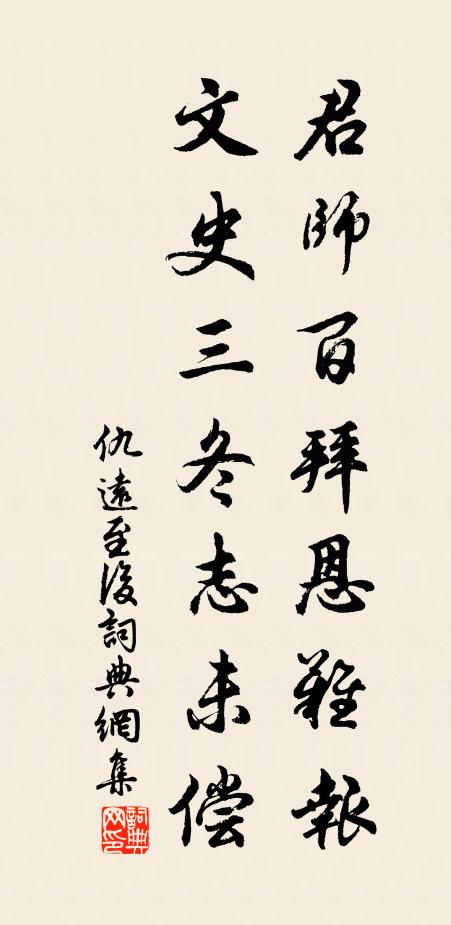 君師百拜恩難報
文史三冬志未偿
仇遠至後詞典網集
詞典网印